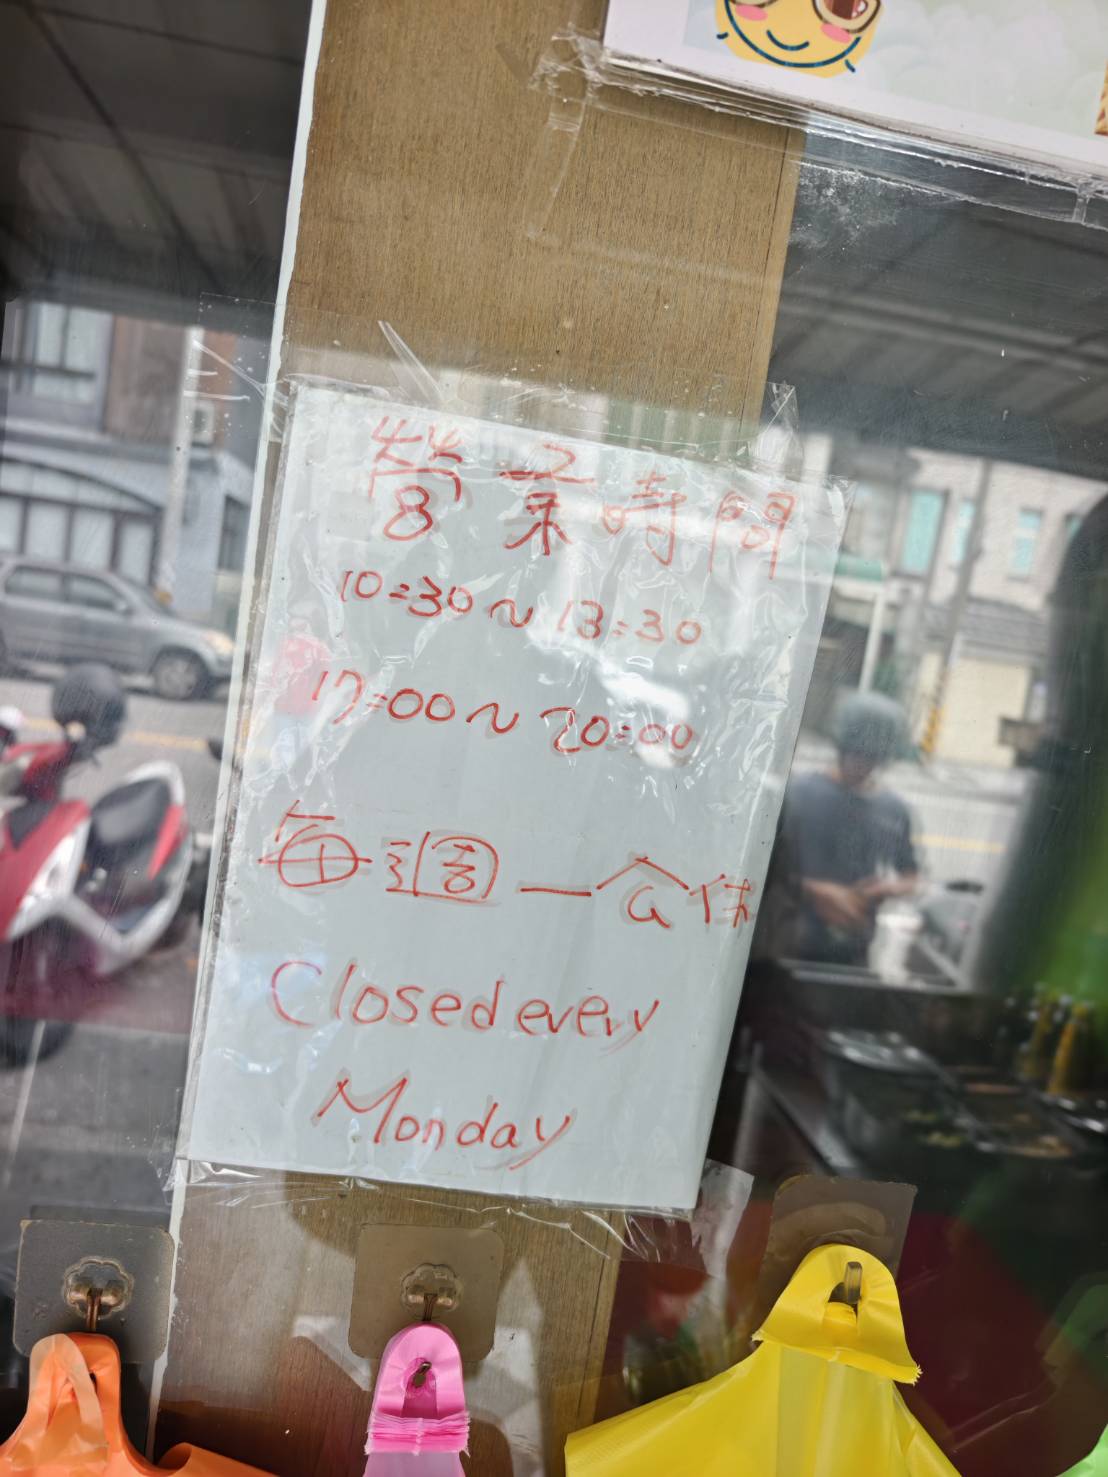 營業時間
10:30~13:30
17:00~20:00
每週一公休
Closed every
Monday